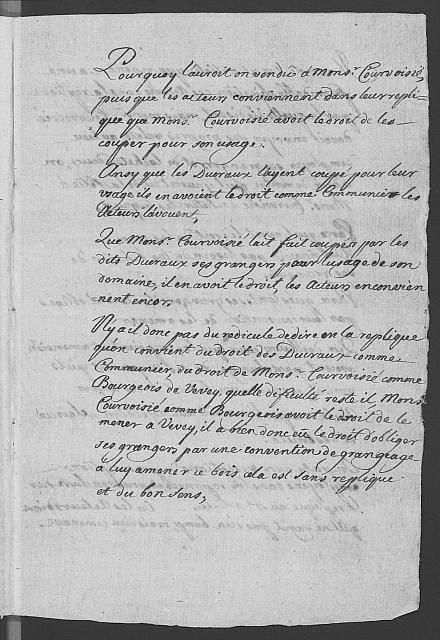 Pourquoy l'auroit on vendu à Monsr. Courvoisié
puis que les acteurs conviennent dans leur repli=
que qu'a Monsr. Courvoisié avoit le droit de les
couper pour son usage.
Ansy que les Ducraux l'ayent coupé pour leur
usage, ils en avoient le droit comme Communier les
Acteurs l'avouent,
Que Monsr. Courvoisié l'ait fait couper par les
dits Ducraux ses grangers pour l'usage de son
domaine, il en avoit le droit, les Acteurs en convien
nent encor.
N'y a il donc pas du redicule de dire en la replique
qu'on convient du droit des Ducraux comme
Communier, du droit de Monsr. Courvoisié comme
Bourgeois de Vevey, quelle dificulté reste il Monsr.
Courvoisié comme Bourgeois avoit le droit de le
mener à Vevey, il a bien donc eu le droit d'obliger
ses grangers par une convention de grangeage
à luy amener ce bois cela est sans replique
et du bon sens,